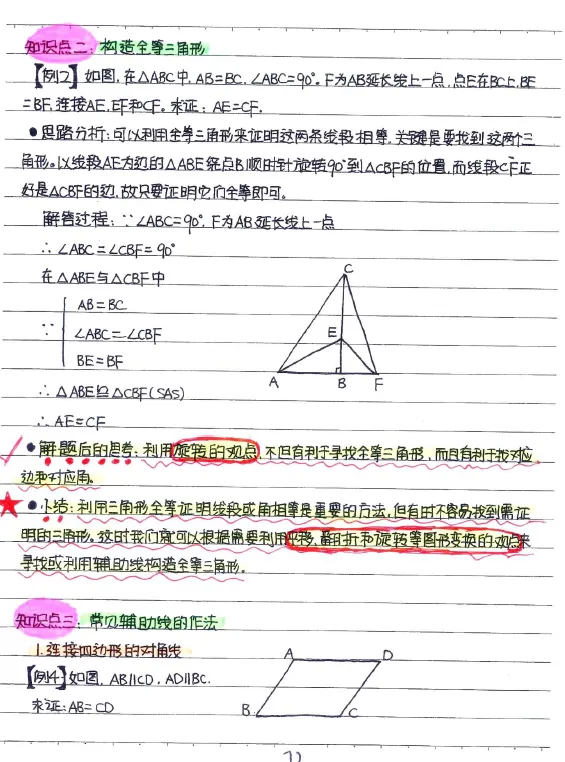 知识点二：构造全等三角形
【例2】如图，在△ABC中，AB=BC，∠ABC=90°。F为AB延长线上一点，点E在BC上，BE
=BF，连接AE、EF和CF。求证：AE=CF。
●思路分析：可以利用全等三角形来证明这两条线段相等，关键是要找到这两个三
角形。以线段AE为边的△ABE绕点B顺时针旋转90°到△CBF的位置，而线段CF正
好是△CBF的边，故只要证明它们全等即可。
解答过程：∵∠ABC=90°，F为AB延长线上一点
∴∠ABC=∠CBF=90°
在△ABE与△CBF中
AB=BC
∵ ∠ABC=∠CBF
BE=BF
∴△ABE≌△CBF(SAS)
∴AE=CF
C
E
A B F
●解题后的思考：利用旋转的观点，不但有利于寻找全等三角形，而且有利于找对应
边和对应角。
★●小结：利用三角形全等证明线段或角相等是重要的方法，但有时不容易找到需证
明的三角形。这时我们就可以根据需要利用平移、翻折和旋转等图形变换的观点来
寻找或利用辅助线构造全等三角形。
知识点三：常见辅助线的作法
1.连接四边形的对角线
【例4】如图，AB∥CD，AD∥BC，
求证：AB=CD
A D
B C